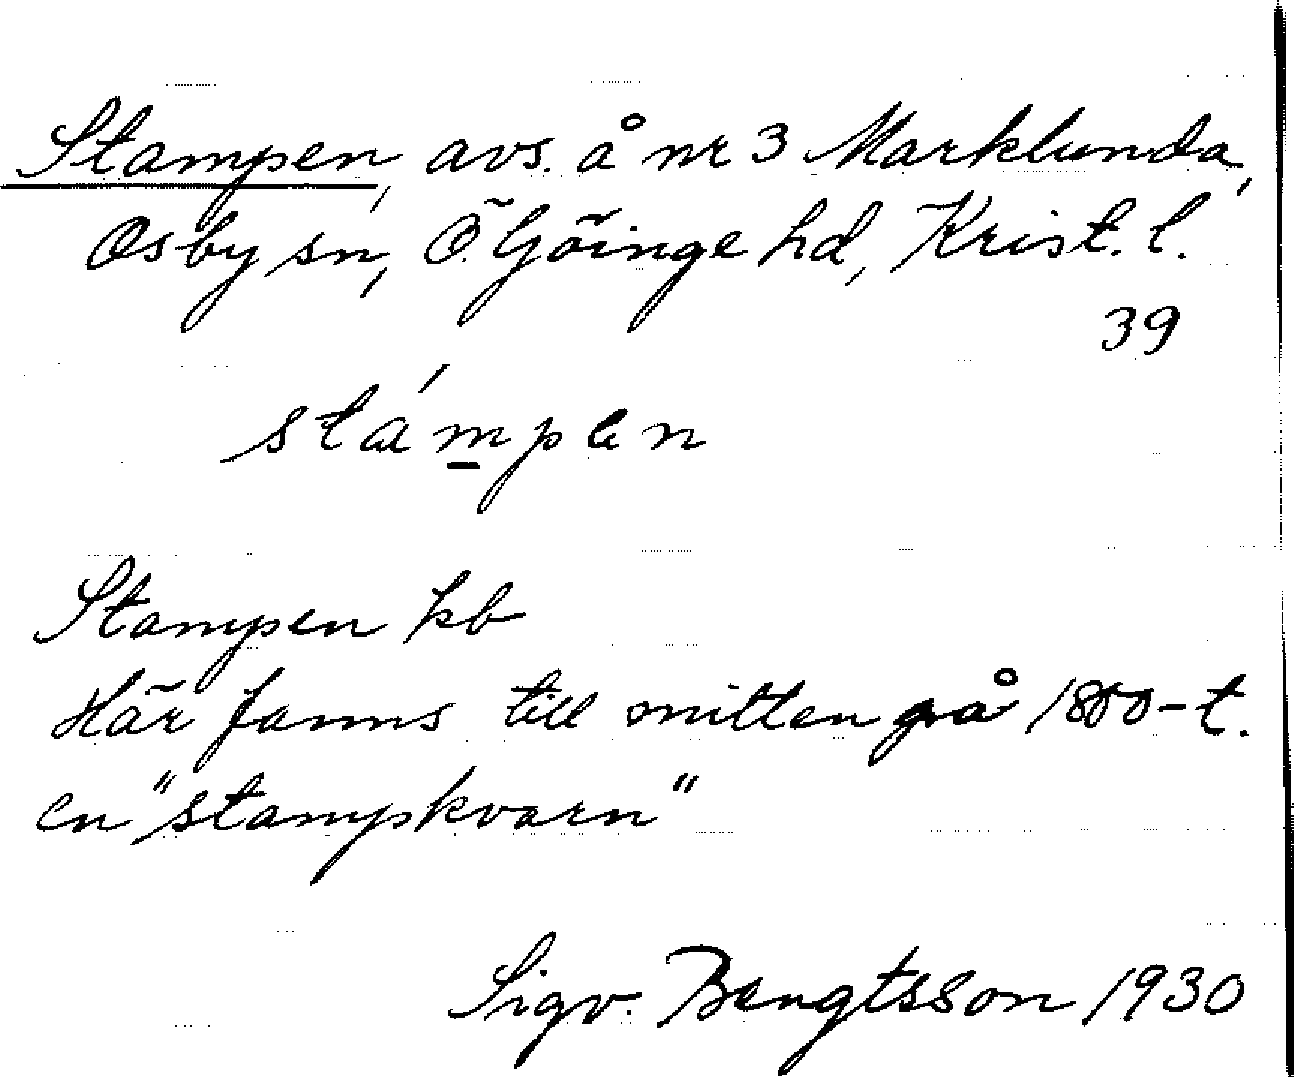 Stampen, avs. å nr 3 Marklunda,
Osby sn, Ö. Göinge hd, Krist. l.
39
stámpen
Stampen kb
Här fanns till mitten på 1800-t.
en "stampkvarn"
Sigv. Bengtsson 1930